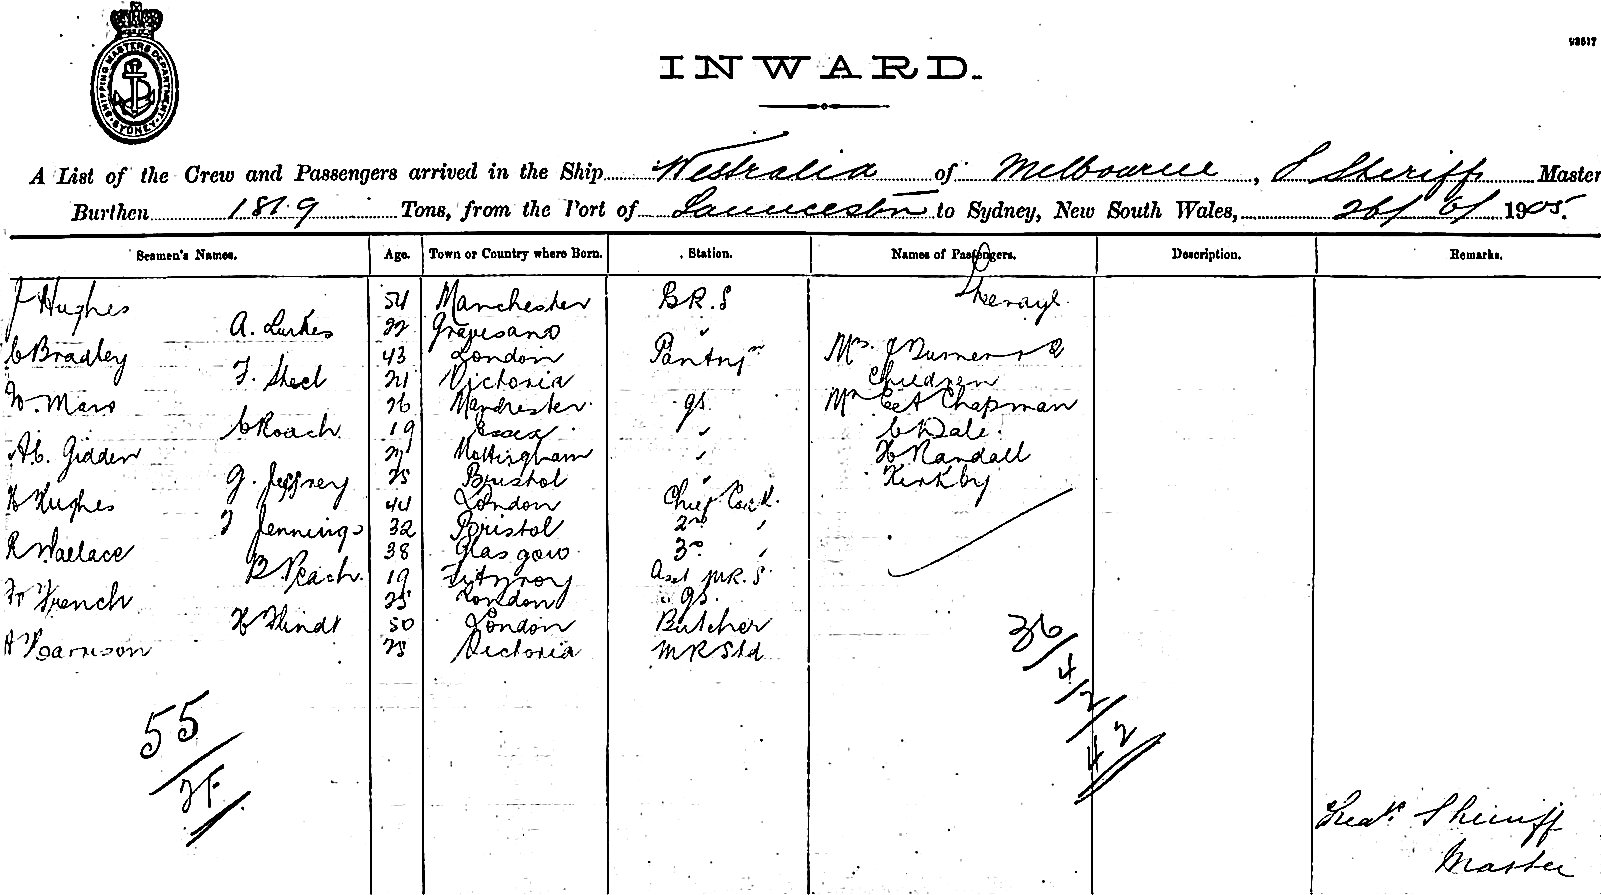 93517
SHIPPING MASTERS DEPARTMENT
SYDNEY
INWARD.
A List of the Crew and Passengers arrived in the Ship Westralia of Melbourne, S Sheriff Master
Burthen 1819 Tons, from the Port of Launceston to Sydney, New South Wales, 26/6/1905.
Seamen's Names. Age. Town or Country where Born. Station. Names of Passengers. Description. Remarks.
J Hughes 54 Manchester B.R.S
A. Lurkes 22 Gravesand "
C Bradley 43 London Pantryman Mrs
F. Steel 21 Victoria Children
W. Maro 26 Manchester gs. E & A Chapman
C Roach 19 Essex " C Dale.
A.C. Gidden Nottingham " H Randall
G. Jeffrey 25 Bristol " Kirkby
H Hughes 44 London Chief Cook.
F Jennings 32 Bristol 2nd "
R Wallace 38 Glasgow 3rd "
B. Peach. 19 Fitzroy Asst M.R.S.
Fr French 25 London " gs.
H Hindt 50 London Butcher
A Harrison 25 Victoria M R Std
36/
4/
2/
42
55/
Sheriff
Master